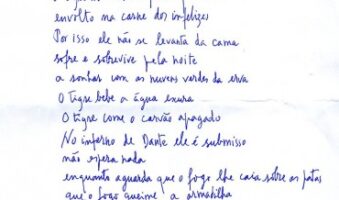 envolto na carne dos infelizes
Por isso ele não se levanta da cama
sofre e sobrevive pela noite
a sonhar com as nuvens verdes da erva
O tigre bebe a água escura
O tigre come o carvão apagado
No inferno de Dante ele é submisso
não espera nada
enquanto aguarda que o fogo lhe caia sobre as patas
que o fogo queime a armadilha